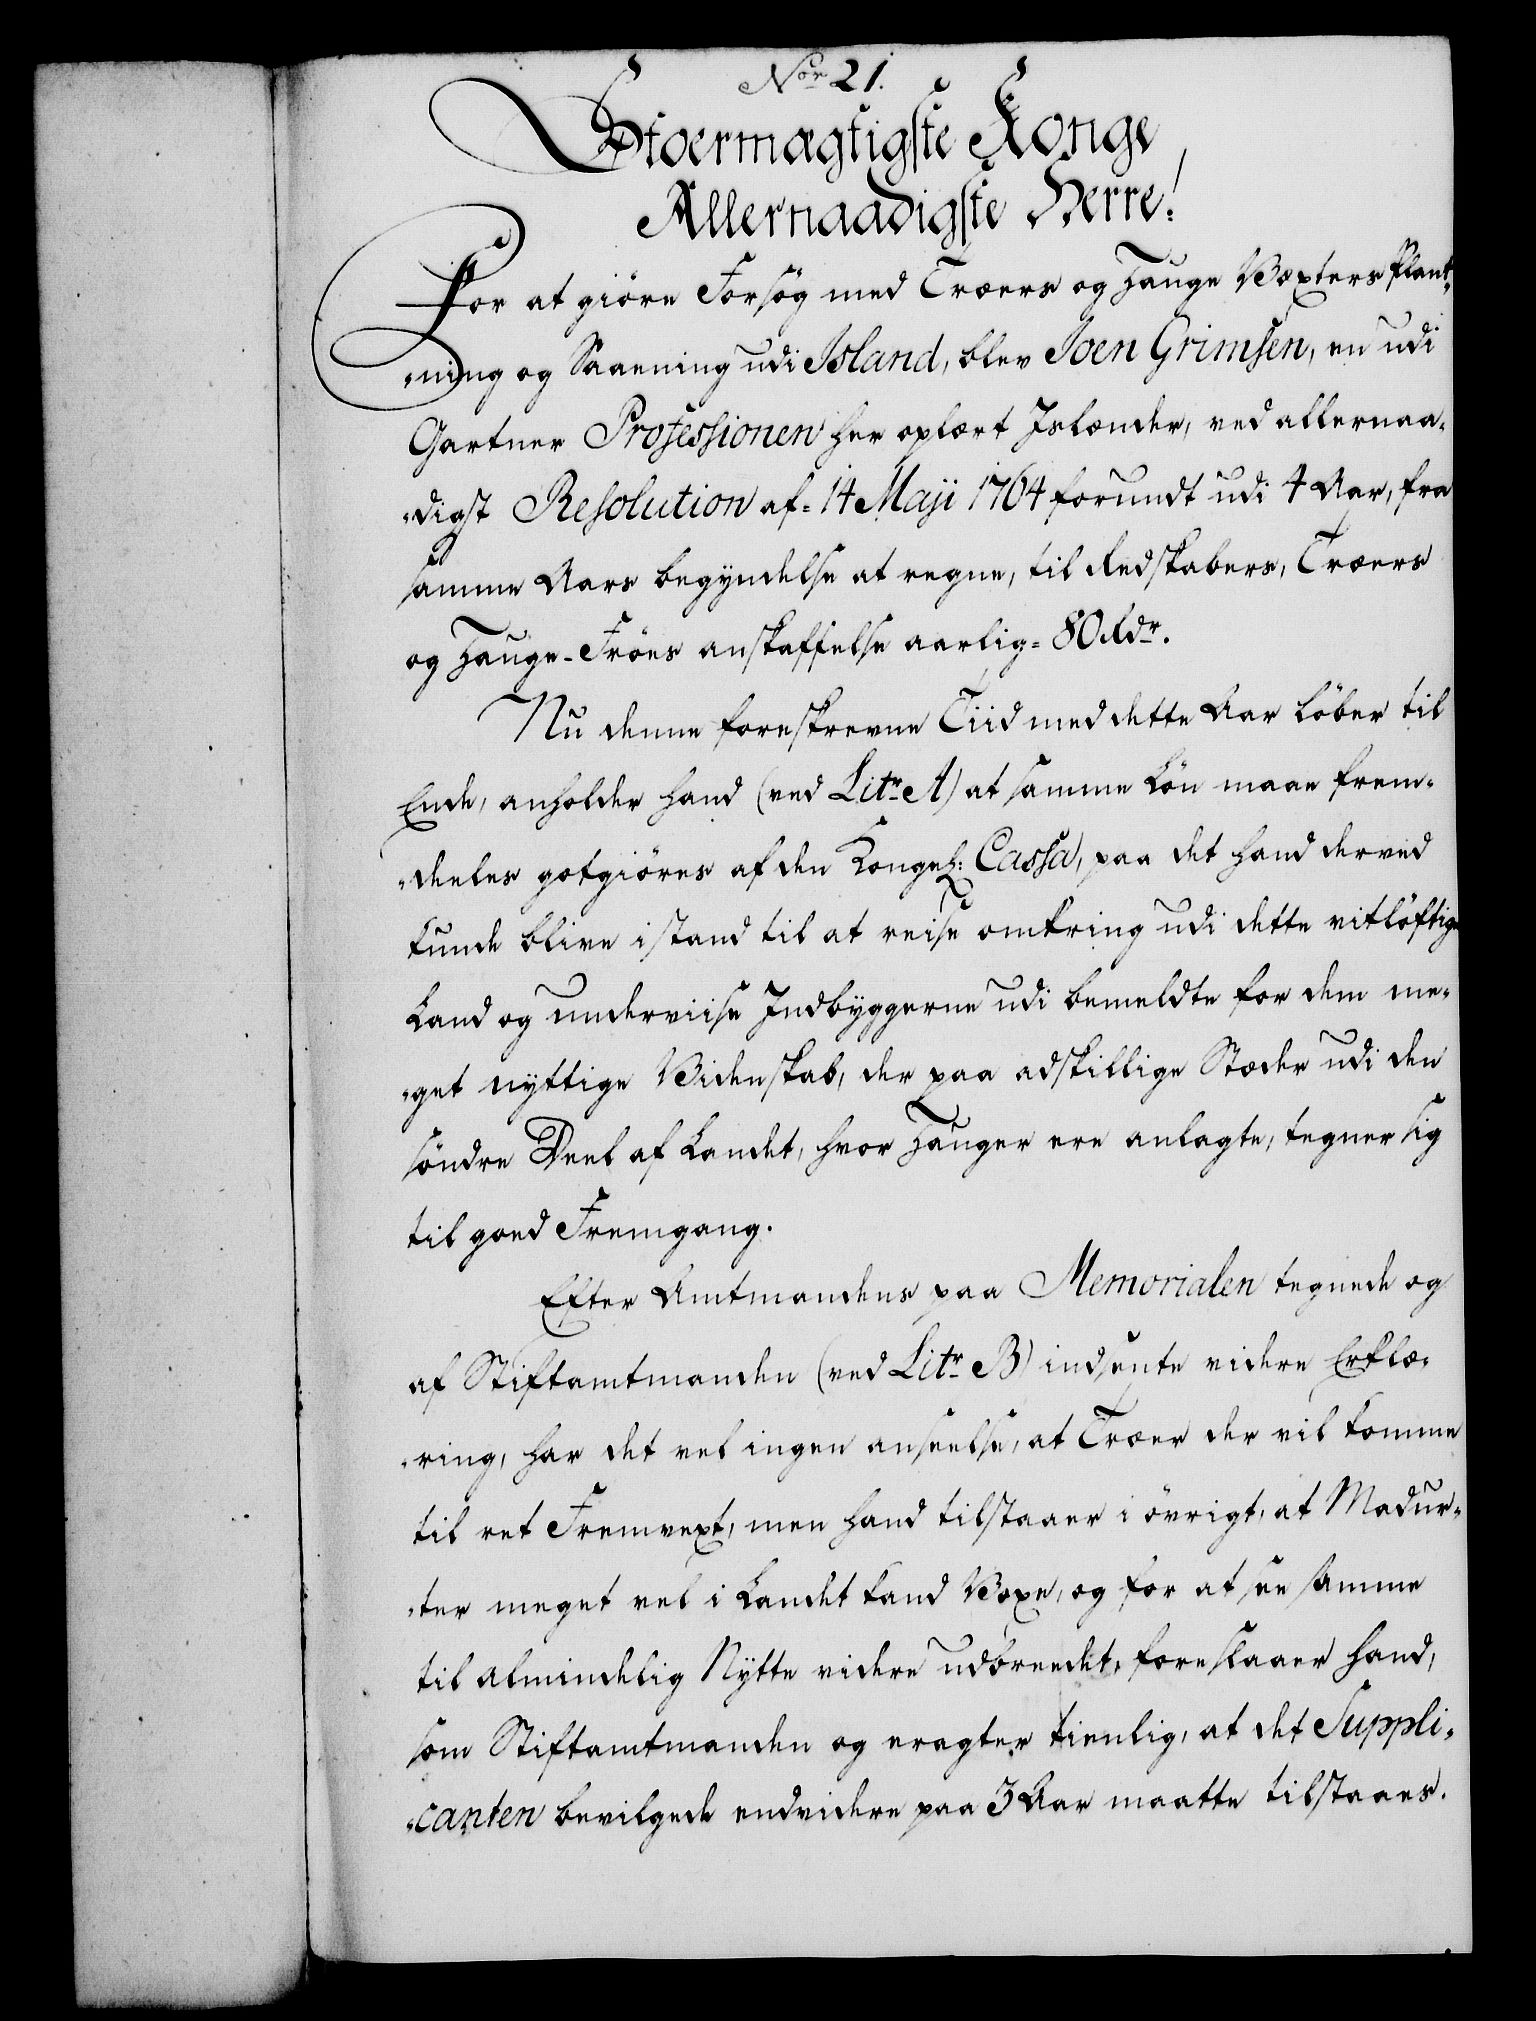 Nor 21.
Stoermægtigste Konge
Allernaadigste Herre!
For at giöre Forsög med Træers og Hauge Væxters Plant-
-ning og Saaening udi Island, blev Joen Grimsen, en udi
Gartner Professionen her oplært Islænder, ved allernaa-
-digst Resolution af 14 Maji 1764 forundt udi 4 Aar, fra
samme Aars begyndelse at regne, til Redskabers, Træers
og Hauge-Fröes anskaffelse aarlig 80 Rdr.
Nu denne foreskrevne Tiid med dette Aar löber til
Ende, anholder hand (ved Litr A) at samme Lön maae frem-
-deeles gotgiöres af den Kongel: Cassa, paa det hand derved
kunde blive istand til at reise omkring udi dette vitlöftige
Land og underviise Indbyggerne udi bemeldte for dem me-
-get nyttige Videnskab, der paa adskillige Stæder udi den
söndre Deel af Landet, hvor Hauger ere anlagte, tegner sig
til goed Fremgang.
Efter Amtmandens paa Memorialen tegnede og
af Stiftamtmanden (ved Litr B) indsente videre Erklæ-
-ring, har det vel ingen anseelse, at Træer der vil komme
til ret Fremvext, men hand tilstaaer i övrigt, at Madur-
-ter meget vel i Landet kand Voxe, og for at see samme
til almindelig Nytte videre udbreedet, foreslaaer hand,
som Stiftamtmanden og eragter tienlig, at det Suppli-
-canten bevilgede endvidere paa 3 Aar maatte tilstaaes.